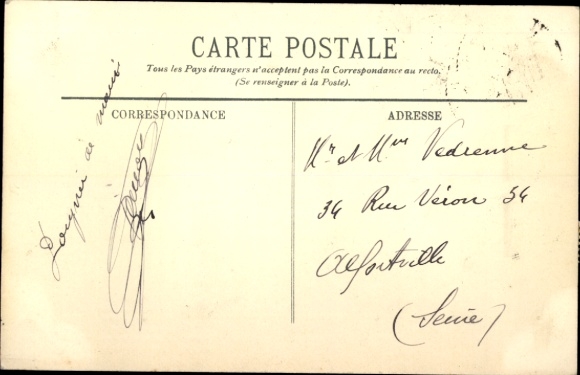 CARTE POSTALE
Tous les Pays étrangers n'acceptent pas la Correspondance au recto.
(Se renseigner à la Poste).
CORRESPONDANCE
de
ADRESSE
Mr et Mme Vedrenne
34 Rue Véron 34
Alfortville
(Seine)